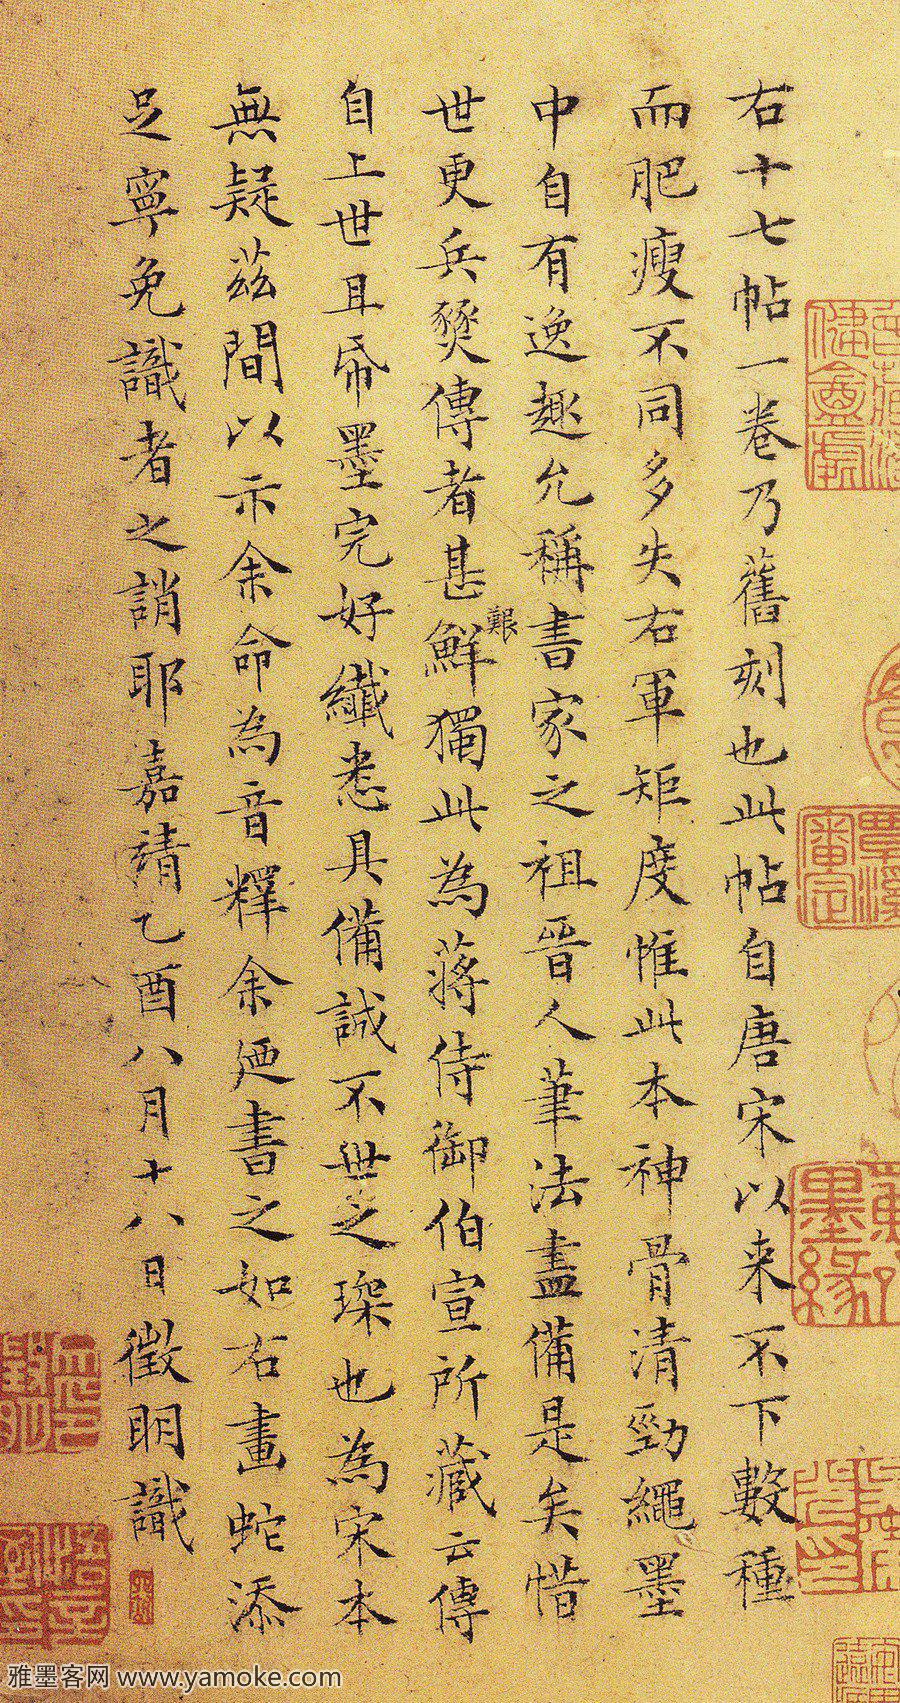 右十七帖一卷乃舊刻也此帖自唐宋以来不下數種
而肥瘦不同多失右軍矩度惟此本神骨清勁繩墨
中自有逸趣允稱書家之祖晉人筆法盡備是矣惜
世更兵燹傳者甚鮮獨此為蔣侍御伯宣所藏云傳
艱
自上世且帋墨完好纖悉具備誠不世之琛也為宋本
無疑茲間以示余命為音釋余廼書之如右畫蛇添
足寧免識者之誚耶嘉靖乙酉八月十八日徵明識
墨緣
審定
雅墨客网 www.yamoke.com